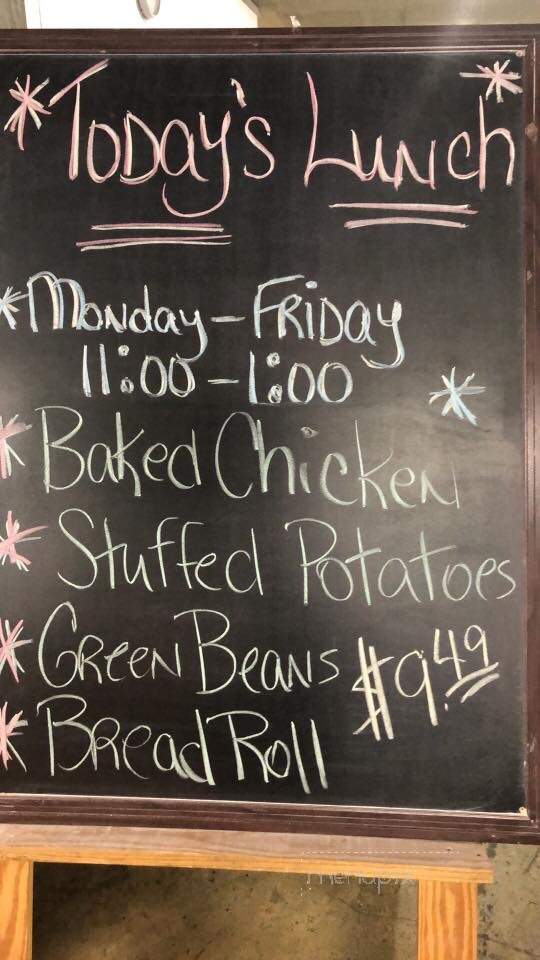 *Today's Lunch*
*Monday - Friday
11:00 - 1:00 *
*Baked Chicken
*Stuffed Potatoes
*Green Beans $9.49
*Bread Roll
menupix